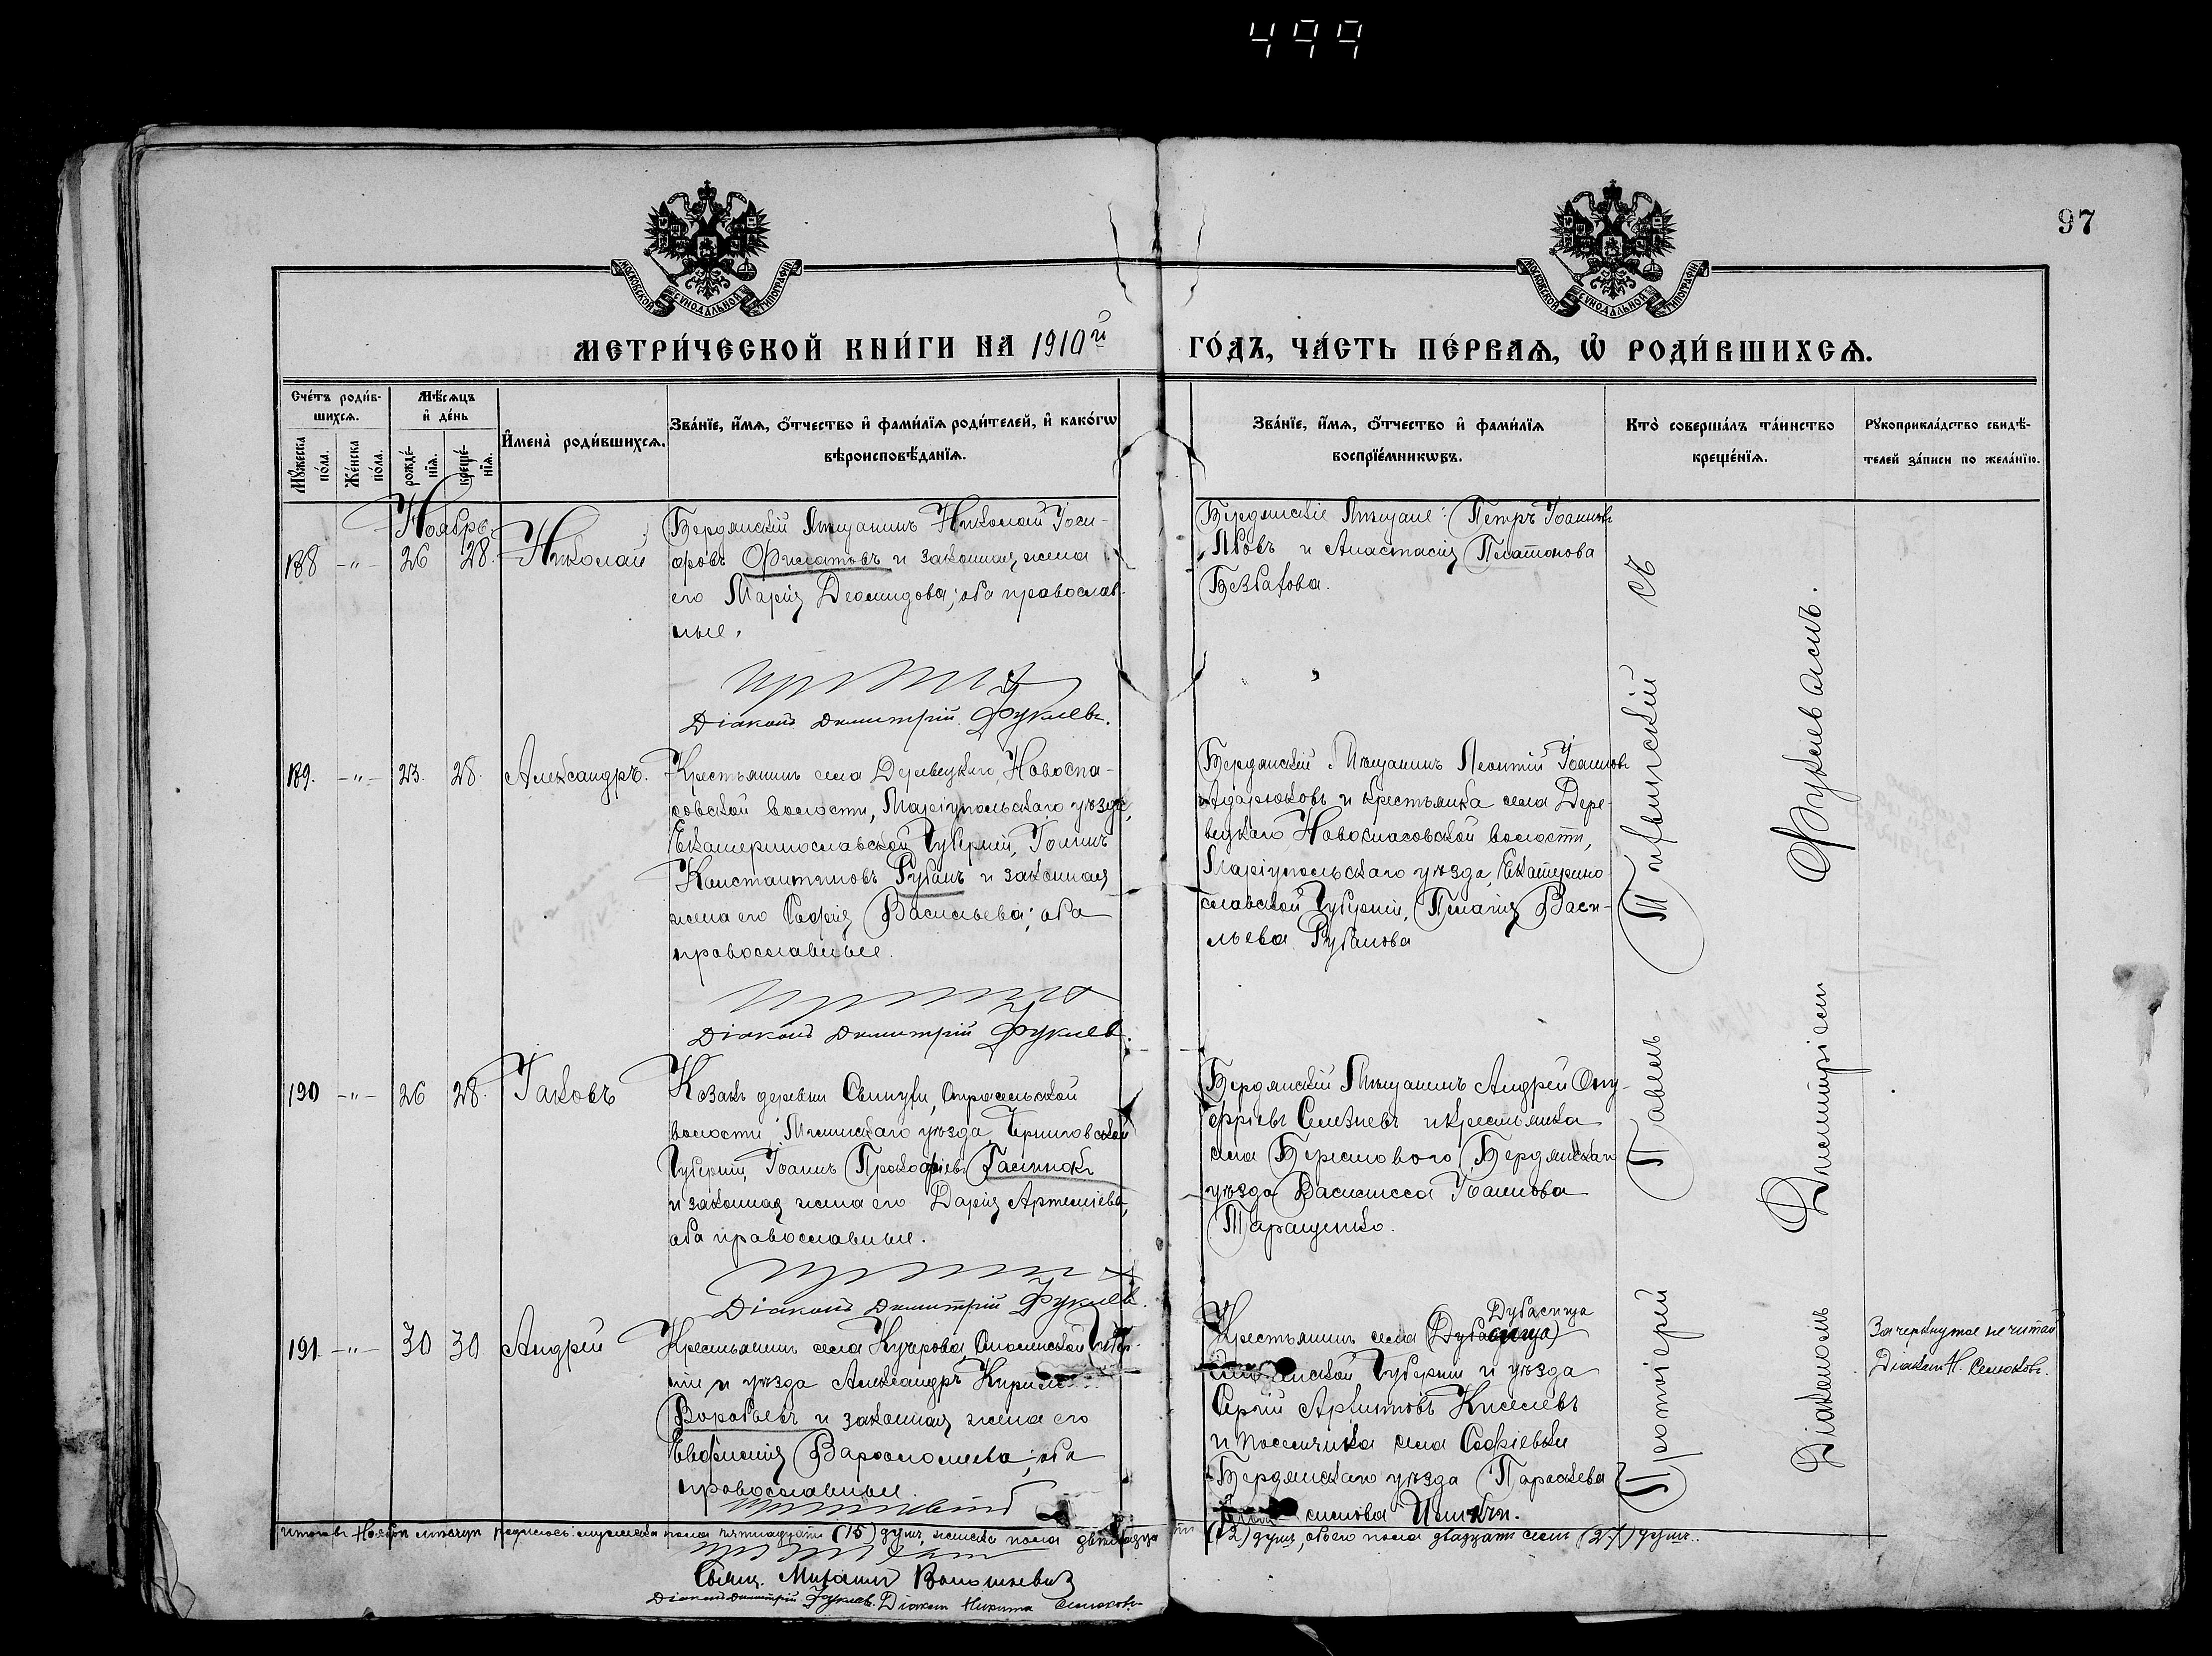 499
97
МОСКОВСКОЙ СѴНОДАЛЬНОЙ ТИПОГРАФІИ.
МОСКОВСКОЙ СѴНОДАЛЬНОЙ ТИПОГРАФІИ.
МЕТРИ́ЧЕСКОЙ КНИ́ГИ НА 1910й ГО́ДЪ, ЧА́СТЬ ПЕ́РВАѦ, Ѡ҆ РОДИ́ВШИХСѦ.
Сче́тъ роди́в-
шихсѧ.
Мꙋ́жеска по́ла.
Же́нска по́ла.
Мѣ́сѧцъ
и҆ де́нь
рожде́-
нїѧ.
креще́-
нїѧ.
И҆мена̀ роди́вшихсѧ.
Зва́нїе, и҆́мѧ, ѻ҆́тчество и҆ фами́лїѧ роди́телей, и҆ како́гѡ
вѣроисповѣ́данїѧ.
Зва́нїе, и҆́мѧ, ѻ҆́тчество и҆ фами́лїѧ
воспрїе́мникѡвъ.
Кто̀ соверша́лъ та́инство
креще́нїѧ.
Рꙋкоприкла́дство свидѣ́-
телей за́писи по жела́нїю.
Ноябрь
188 -"- 26 28. Николай
Бердянскій Мѣщанинъ Николай Іоси-
фовъ Филатовъ и законная жена
его Марія Деомидова; оба православ-
ные.
Діаконъ Димитрій Фукиевъ.
Бердянскіе Мѣщане: Петръ Іоанновъ
Львовъ и Анастасія Платонова
189. -"- 23. 28. Александръ.
Крестьянинъ села Деревецкаго, Новоспа-
совской волости, Маріупольскаго уѣзда,
Екатеринославской Губерніи, Іоаннъ
Константиновъ Рубанъ и законная
жена его Софія Васильева; оба
православные.
Діаконъ Димитрій Фукиевъ.
Бердянскій Мѣщанинъ Леонтій Іоанновъ
и крестьянка села Дере-
вецкаго Новоспасовской волости,
Маріупольскаго уѣзда, Екатерино
славской Губерніи, Пелагія Васи-
льева Рубанова
190 -"- 26 28. Іаковъ
Козакъ деревни
волости Мглинскаго уѣзда, Черниговской
Губерніи, Іоаннъ Прокофіевъ
и законная жена его Дарія Артеміева,
оба православные.
Діаконъ Димитрій Фукиевъ.
Бердянскій Мѣщанинъ Андрей Ону-
фріевъ Селезневъ и крестьянка
села Берестового, Бердянскаго
уѣзда Василисса Іоаннова
Таращенко.
191. -"- 30 30 Андрей
Крестьянинъ села Кучерова Смоленской Губер-
ніи и уѣзда Александръ
Воробьевъ и законная жена его
Евфимія Варфоломеева; оба
православные.
Дубасища
Крестьянинъ села
Губерніи и уѣзда
Сергій Архиповъ Киселевъ
и поселянка села Софіевки
Бердянскаго уѣзда Параскева
Протоіерей Павелъ Тифлинскій съ
Діакономъ Димитріемъ Фукиевымъ.
Зачеркнутое не читай
Діаконъ Н.
Итого въ Ноябрѣ мѣсяцѣ родилось: мужеска пола пятнадцать (15) душъ, женска пола двѣнадцать (12) душъ, обоего пола двадцать семь (27) душъ.
Свящ. Михаилъ
Діаконъ Димитрій Фукиевъ. Діаконъ Никита